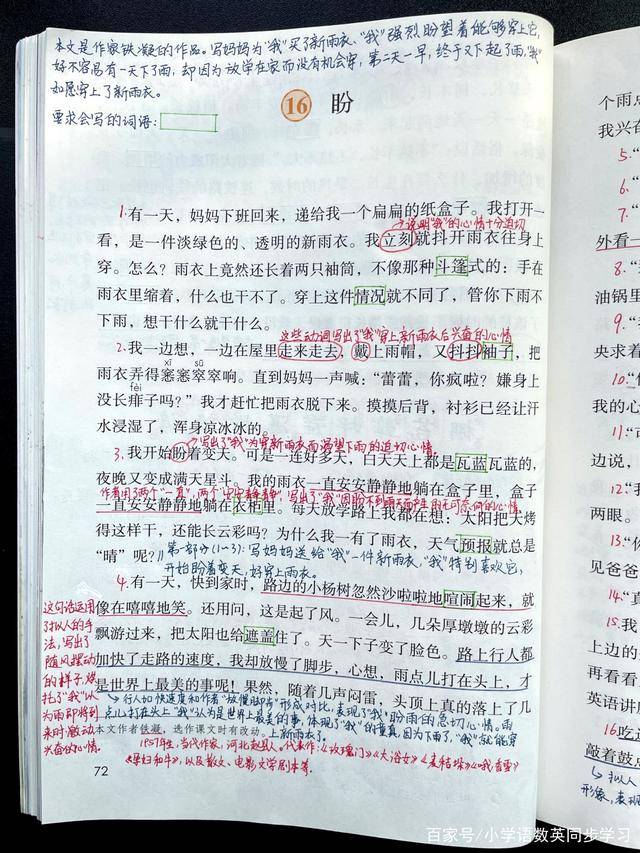 本文是作家铁凝的作品。写妈妈为“我”买了新雨衣、“我”强烈盼望着能够穿上它,
好不容易有一天下了雨,却因为放学在家而没有机会穿,第二天一早,终于又下起了雨,“我”
如愿穿上了新雨衣。
要求会写的词语:
16 盼
1.有一天,妈妈下班回来,递给我一个扁扁的纸盒子。我打开一
说明“我”的心情十分迫切
看,是一件淡绿色的、透明的新雨衣。我立刻就抖开雨衣往身上
穿。怎么?雨衣上竟然还长着两只袖筒,不像那种斗篷式的:手在
雨衣里缩着,什么也干不了。穿上这件情况就不同了,管你下雨不
下雨,想干什么就干什么。
这些动词写出了“我”穿上新雨衣后兴奋的心情
2.我一边想,一边在屋里走来走去,戴上雨帽,又抖抖袖子,把
xī sū
雨衣弄得窸窸窣窣响。直到妈妈一声喊:“蕾蕾,你疯啦?嫌身上
fèi
没长痱子吗?”我才赶忙把雨衣脱下来。摸摸后背,衬衫已经让汗
水浸湿了,浑身凉冰冰的。
写出了“我”为穿新雨衣而渴望下雨的迫切心情
3.我开始盼着变天。可是一连好多天,白天天上都是瓦蓝瓦蓝的,
夜晚又变成满天星斗。我的雨衣一直安安静静地躺在盒子里,盒子
作者用了两个“一直”,两个“安安静静”,写出了“我”因盼不到雨天而产生的无可奈何的心情
一直安安静静地躺在衣柜里。每天放学路上我都在想:太阳把天烤
得这样干,还能长云彩吗?为什么我一有了雨衣,天气预报就总是
“晴”呢?
第一部分(1-3):写妈妈送给“我”一件新雨衣,“我”特别喜欢它,
开始盼着变天,好穿上雨衣。
4.有一天,快到家时,路边的小杨树忽然沙啦啦地喧闹起来,就
像在嘻嘻地笑。还用问,这是起了风。一会儿,几朵厚墩墩的云彩
飘游过来,把太阳也给遮盖住了。天一下子变了脸色。路上行人都
加快了走路的速度,我却放慢了脚步,心想,雨点儿打在头上,才
是世界上最美的事呢!果然,随着几声闷雷,头顶上真的落上了几
这句话运用
了拟人的手
法,写出了
随风摆动
的样子,烘
托了“我”认
为雨即将到
来时激动
兴奋的心情。
行人加快速度和作者“放慢脚步”形成对比,表现了“我”盼雨的急切心情。雨
点儿打在头上“我”认为是世界上最美的事,体现了“我”的童真,因为下雨了“我”就能穿
上新雨衣了。
本文作者铁凝,选作课文时有改动。
1957年生,当代作家,河北赵县人。代表作:《玫瑰门》《大浴女》《麦秸垛》《哦,香雪》
《孕妇和牛》,以及散文、电影文学剧本等。
72
个雨点
我兴在
5.“
6.“
7.“
外看一
8.“
油锅里
9.“
央求着
10.“
我的心
11.“
边说,
12.“
两眼。
13.“
见爸爸
14.“
15.
上边的
再看看
英语讲
16.吃
敲着鼓点
拟人
形象,表现
百家号/小学语数英同步学习